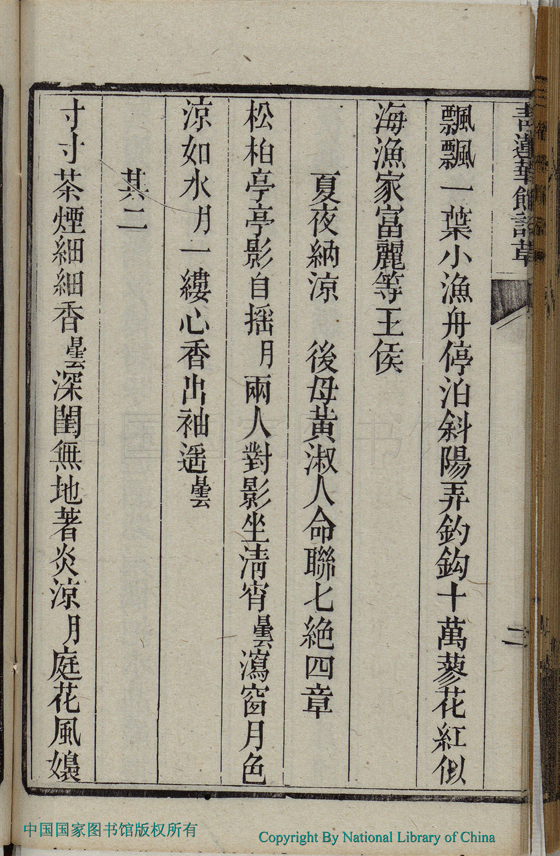 青蓮華館詩草
二
飄飄一葉小漁舟停泊斜陽弄釣鈎十萬蓼花紅似
海漁家富麗等王侯
夏夜納涼　後母黃淑人命聯七絕四章
松柏亭亭影自搖月兩人對影坐清宵曇瀉窗月色
涼如水月一縷心香出袖遥曇
其二
寸寸茶煙細細香曇深閨無地著炎涼月庭花風嬝
中国国家图书馆版权所有
Copyright By National Library of China